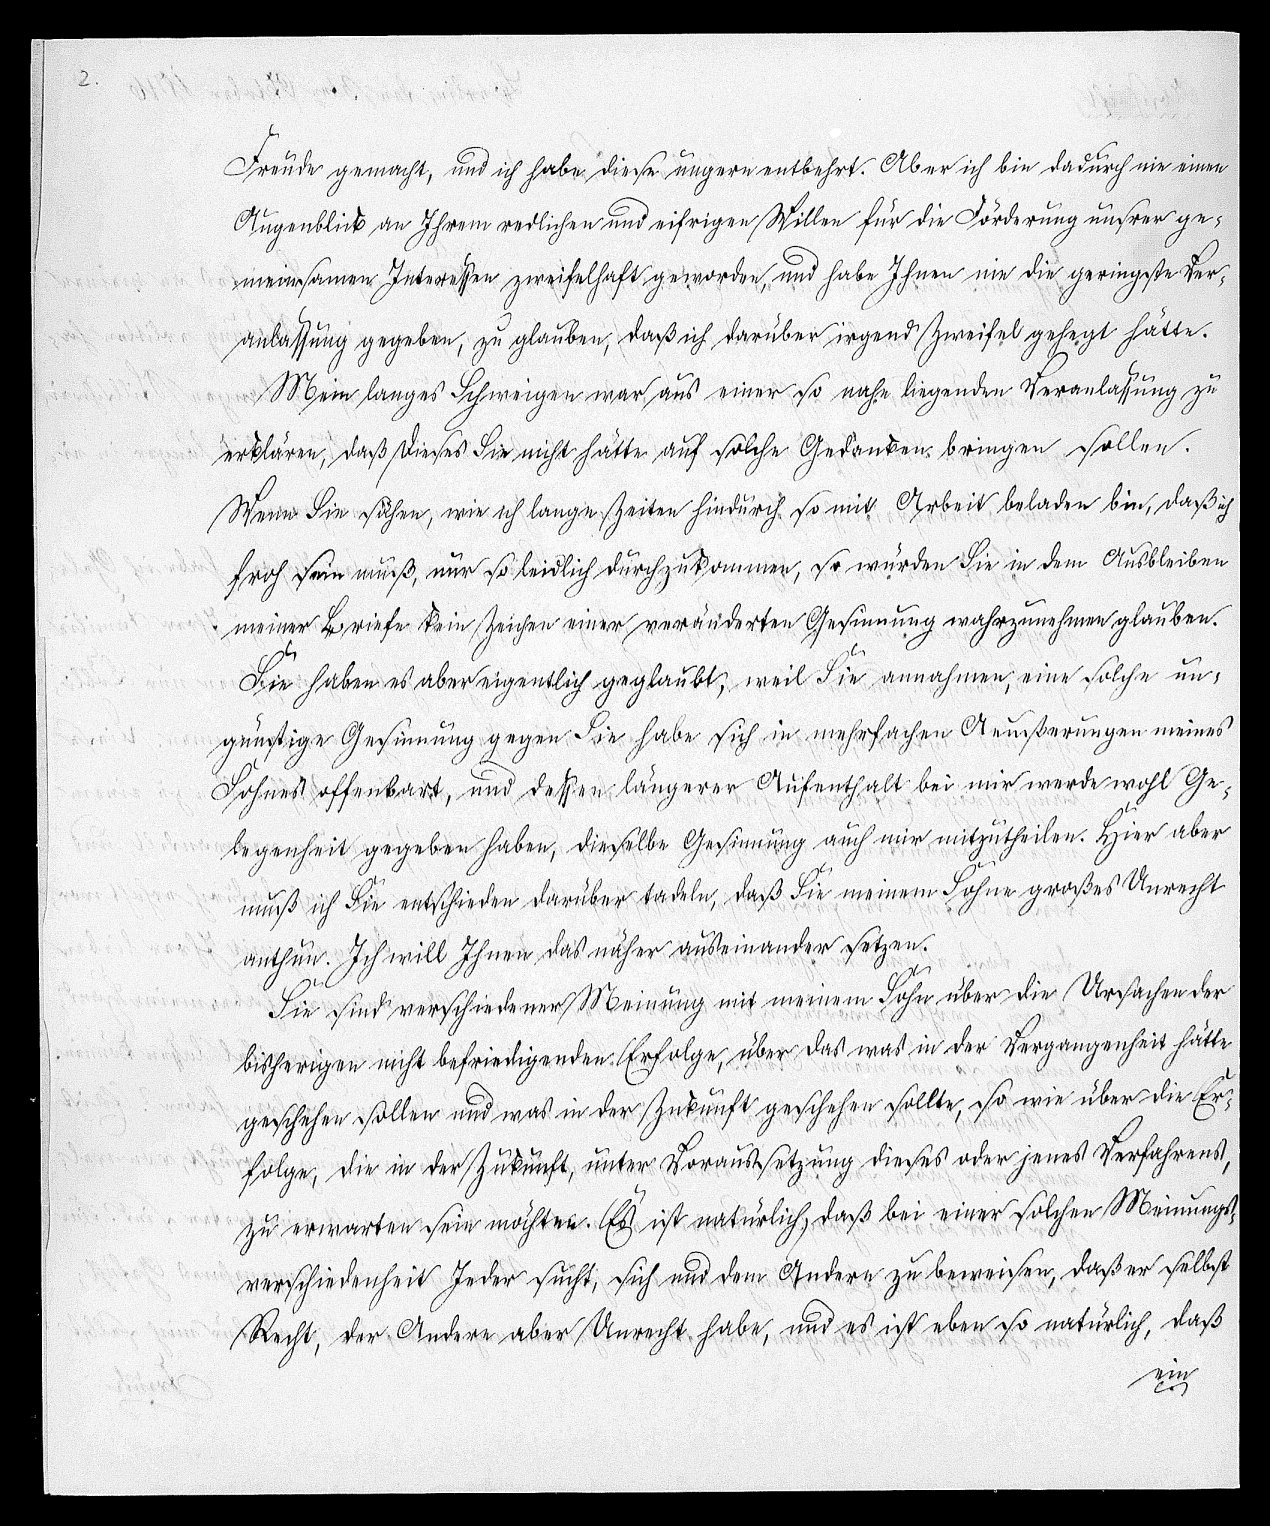 2.
Freude gemacht, und ich habe diese ungern entbehrt. Aber ich bin dadurch nie einen
Augenblick an Ihrem redlichen und eifrigen Willen für die Förderung unsrer ge-
meinsamen Interessen zweifelhaft geworden, und habe Ihnen nie die geringste Ver-
anlassung gegeben, zu glauben, daß ich darüber irgend Zweifel gehegt hätte.
Mein langes Schweigen war aus einer so nahe liegenden Veranlassung zu
erklären, daß dieses Sie nicht hätte auf solche Gedanken bringen sollen.
Wenn Sie sähen, wie ich lange Zeiten hindurch so mit Arbeit beladen bin, daß ich
froh sein muß, nur so leidlich durchzukommen, so würden Sie in dem Ausbleiben
meiner Briefe kein Zeichen einer veränderten Gesinnung wahrzunehmen glauben.
Sie haben es aber eigentlich geglaubt, weil Sie annahmen, eine solche un-
günstige Gesinnung gegen Sie habe sich in mehrfachen Aeußerungen meines
Sohnes offenbart, und dessen längerer Aufenthalt bei mir werde wohl Ge-
legenheit gegeben haben, dieselbe Gesinnung auch mir mitzutheilen. Hier aber
muß ich Sie entschieden darüber tadeln, daß Sie meinem Sohne großes Unrecht
anthun. Ich will Ihnen das näher auseinander setzen.
Sie sind verschiedener Meinung mit meinem Sohn über die Ursachen der
bisherigen nicht befriedigenden Erfolge, über das was in der Vergangenheit hätte
geschehen sollen und was in der Zukunft geschehen sollte, so wie über die Er-
folge, die in der Zukunft, unter Voraussetzung dieses oder jenes Verfahrens,
zu erwarten sein möchten. Es ist natürlich, daß bei einer solchen Meinungs-
verschiedenheit Jeder sucht, sich und dem Andern zu beweisen, daß er selbst
Recht, der Andere aber Unrecht habe, und es ist eben so natürlich, daß
ein